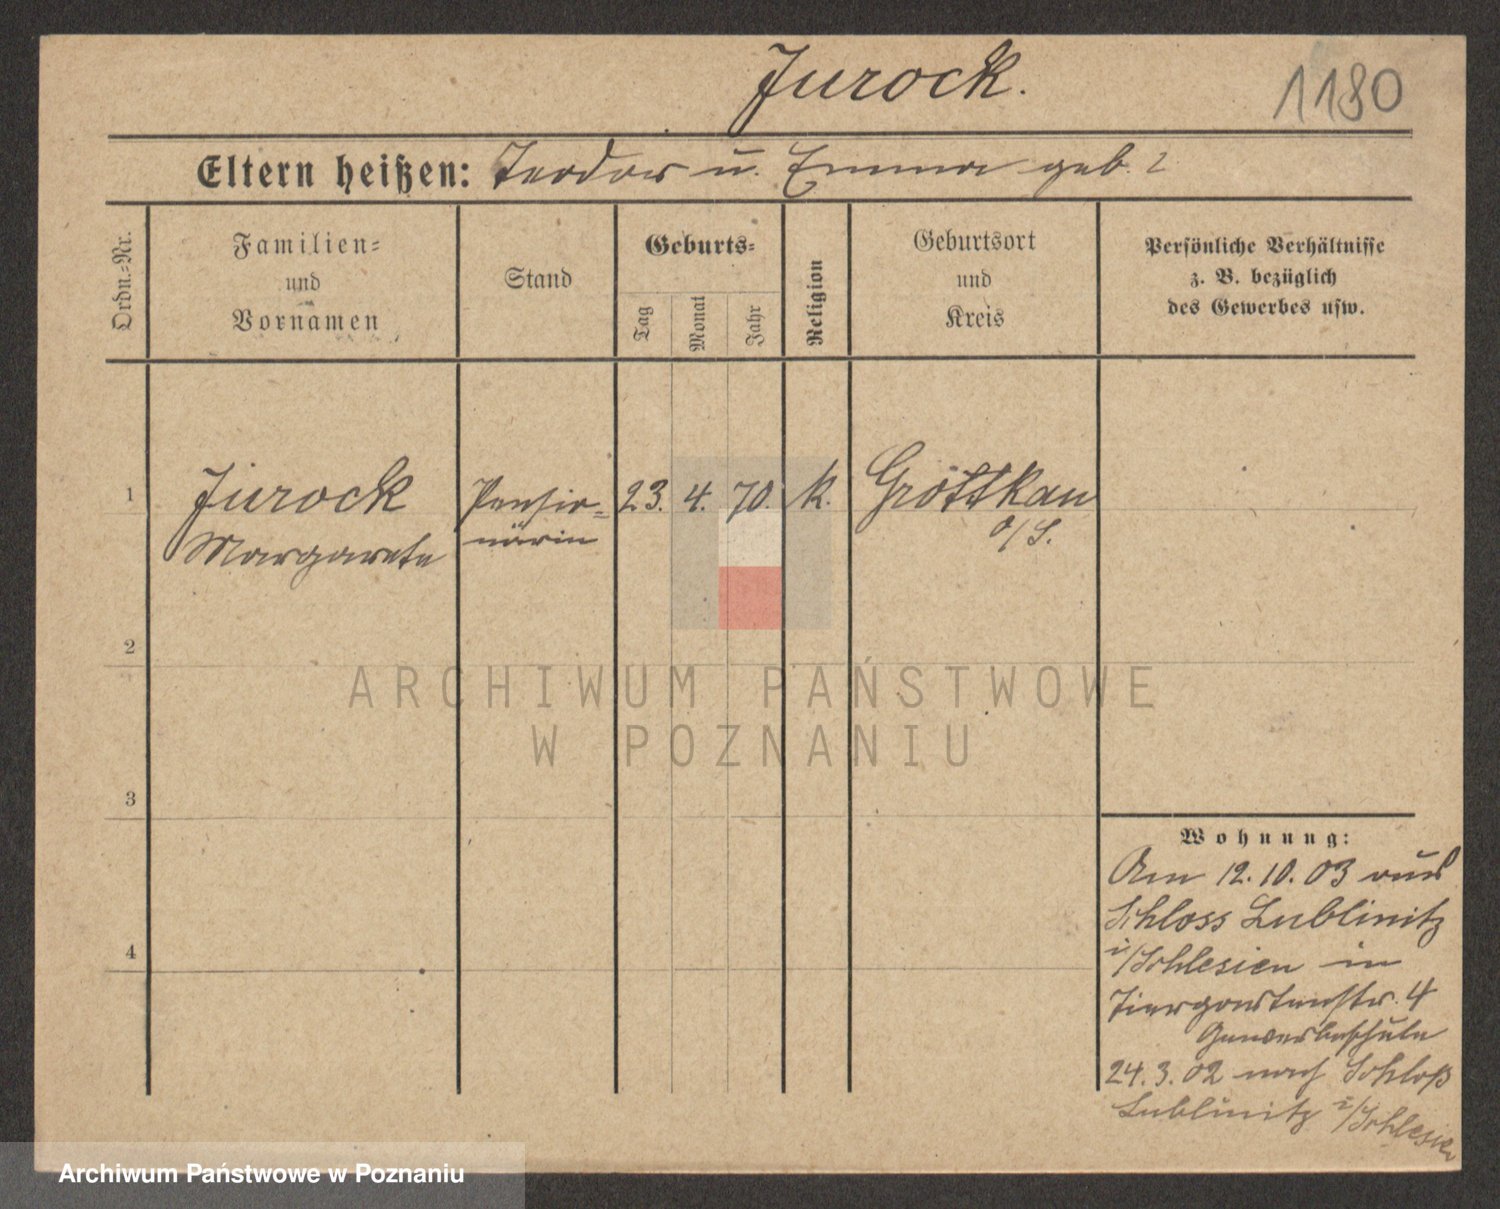 Jurock.
1180
Eltern heißen: Teodor u. Emma geb. ?
Ordn.-Nr.
Familien-
und
Vornamen
Stand
Geburts-
Tag
Monat
Jahr
Religion
Geburtsort
und
Kreis
Persönliche Verhältnisse
z. B. bezüglich
des Gewerbes usw.
1
Jurock
Margarete
Pensio-
närin
23. 4. 70. k.
Grottkau
o/S.
2
3
4
Wohnung:
Am 12.10.03 aus
Schloss Lublinitz
i/Schlesien in
Tiergartenstr. 4
Gewerbeschule
24.3.02 nach Schloß
Lublinitz i/Schlesien
ARCHIWUM PAŃSTWOWE
W POZNANIU
Archiwum Państwowe w Poznaniu